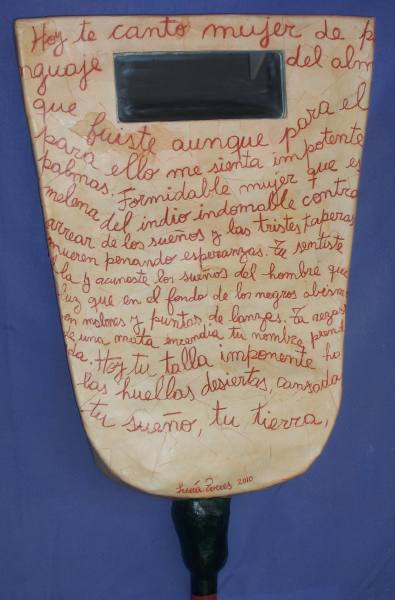 Hoy te canto mujer de p
nguaje del alm
que fuiste aunque para el
para ello me sienta impotente
palmas. Formidable mujer que es
melena del indio indomable contra
arrear de los sueños y las tristes taperas
mueren penando esperanzas. Tu sentiste
lla y acunaste los sueños del hombre que
luz que en el fondo de los negros abism
en malones y puntas de lanzas. Tu
de una mata encendía tu nombre, prend
da. Hoy tu talla imponente ha
las huellas desiertas, cansada
tu sueño, tu tierra,
Torres 2010